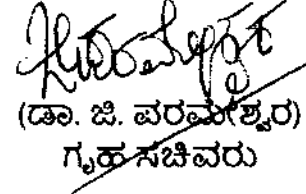 (ಡಾ. ಜಿ. ಪರಮೇಶ್ವರ)
ಗೃಹ ಸಚಿವರು